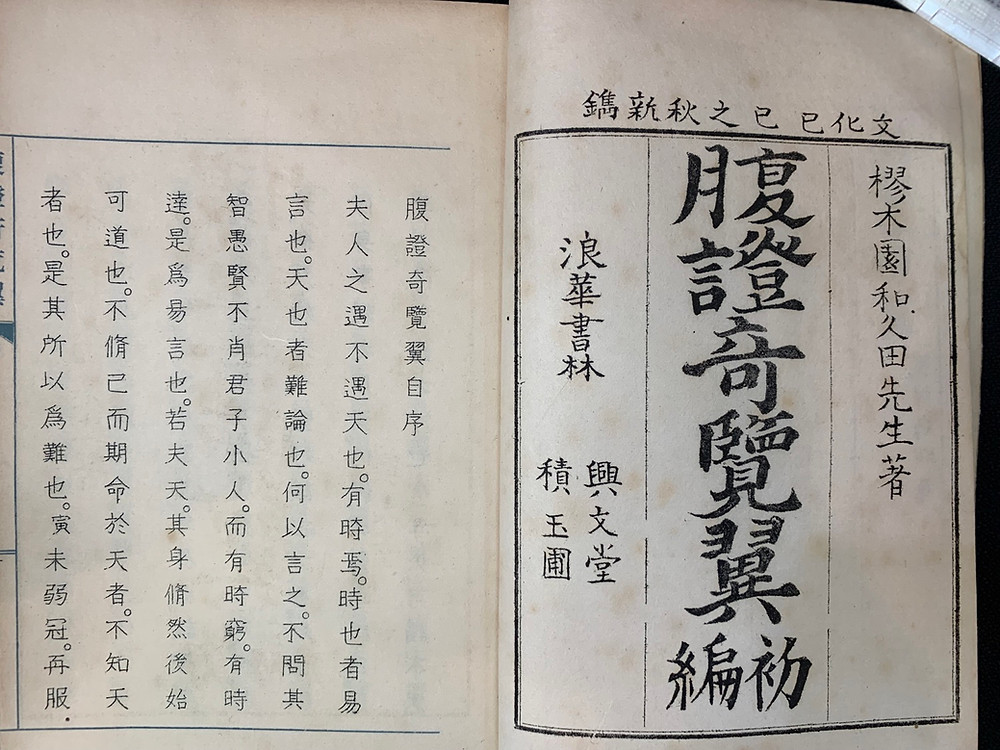 文化己巳之秋新鐫
樛木園和久田先生著
腹證奇覽翼初編
浪華書林
興文堂
積玉圃
腹證奇覽翼自序
夫人之遇不遇天也。有時焉。時也者易
言也。天也者難論也。何以言之。不問其
智愚賢不肖君子小人。而有時窮。有時
達。是爲易言也。若夫天。其身脩然後始
可道也。不脩己而期命於天者。不知天
者也。是其所以爲難也。寅未弱冠。再服